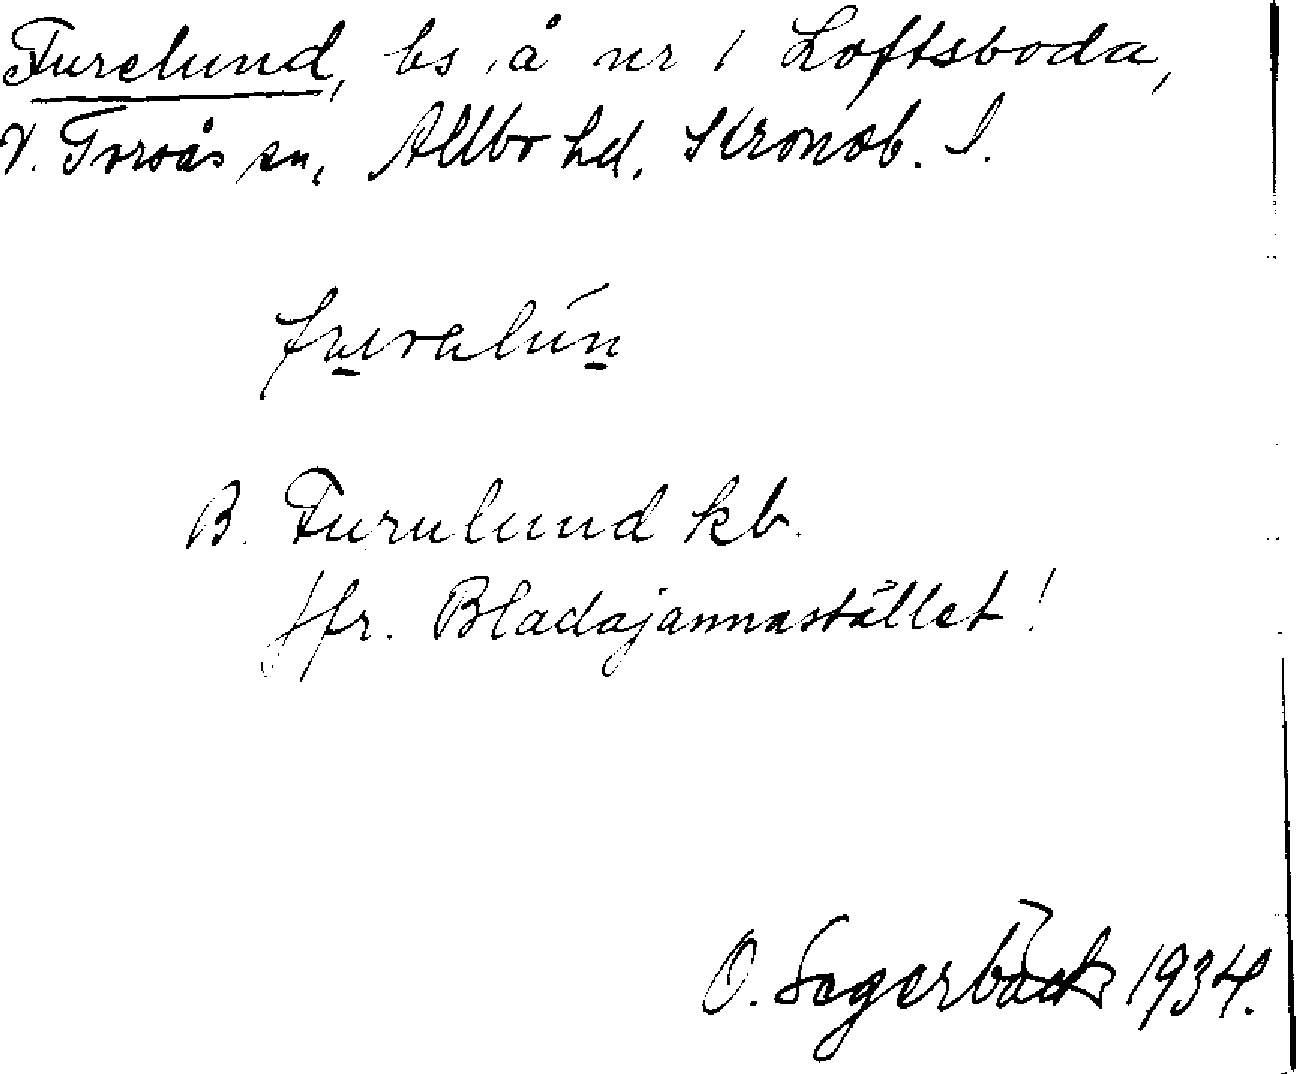 Furelund, bs å nr 1 Loftsboda,
V. Torsås sn, Allbo hd. Kronob. l.
furalún
B. Furulund kb.
Jfr. Bladajannastället!
O. Segerbäck 1934.